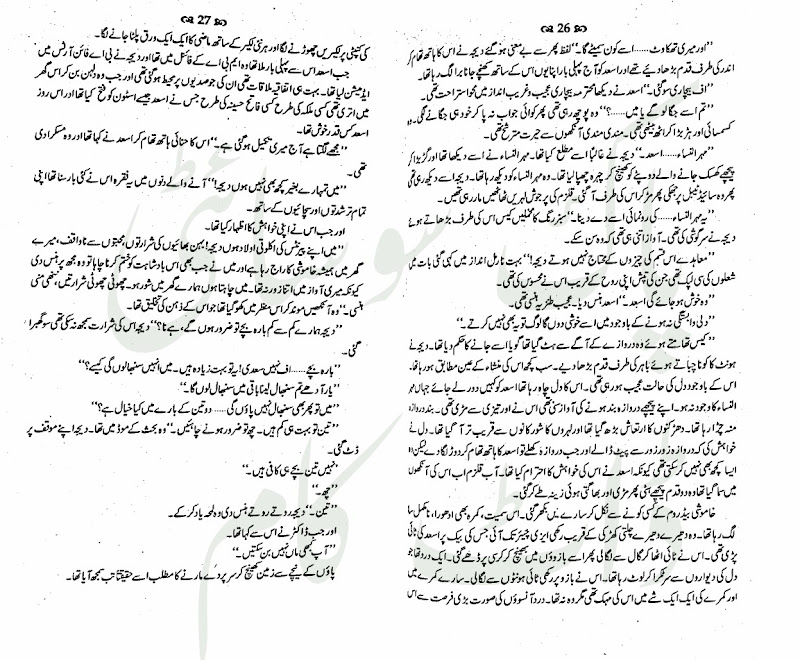 26
”اور میری تھکاوٹ...... اسے کون سمیٹے گا۔“ لفظ پھر سے بے معنی ہو گئے دیجہ نے اس کا ہاتھ تھام کر
اندر کی طرف قدم بڑھا دیے تھے اور اسعد کو آج پہلی بار اپنا یوں اس کے ساتھ کھنچے جانا برا لگ رہا تھا۔
”اف بیچاری سو گئی۔“ اسعد نے دیکھا محترمہ بیچاری عجیب و غریب انداز میں محو استراحت تھی۔
”تم اسے جگاؤ گے یا میں......؟“ وہ پوچھ رہی تھی پھر کوئی جواب نہ پا کر خود ہی جگانے لگی۔ وہ
کسمسائی اور ہڑبڑا کر اٹھ بیٹھی تھی۔ مندی مندی آنکھوں سے حیرت مترشح تھی۔
”مہر النساء...... اسعد۔“ دیجہ نے غالباً اسے مطلع کیا تھا۔ مہر النساء نے اسے دیکھا تھا اور گڑبڑا کر
پیچھے کھسک جانے والے دوپٹے کو کھینچ کر چہرہ چھپا لیا تھا۔ وہ مہر النساء کو دیکھ رہا تھا۔ دیجہ اسے دیکھ رہی تھی
پھر وہ سائیڈ ٹیبل پر جھکی پھر مڑ کر اس کی طرف آ گئی۔ قلزم کی پرجوش لہریں ٹھاٹھیں مار رہی تھیں۔
”یہ مہر النساء...... کی رونمائی اسے دے دینا۔“ سبز رنگ کا مخملیں کیس اس کی طرف بڑھاتے ہوئے
دیجہ نے سرگوشی کی تھی۔ آواز اتنی ہی تھی کہ وہ سن سکے۔
”معاہدے اس قسم کی چیزوں کے محتاج نہیں ہوتے دیجہ!“ بہت نارمل انداز میں کہی گئی بات میں
شعلوں کی سی لپک تھی جن کی تپش اپنی روح کے قریب اس نے محسوس کی تھی۔
”وہ خوش ہو جائے گی اسعد۔“ اسعد ہنس دیا۔ عجیب طنزیہ ہنسی تھی۔
”دلی وابستگی نہ ہونے کے باوجود میں اسے خوشی دوں گا لوگ تو یہ بھی نہیں کرتے۔“
کیس تھامتے ہوئے وہ دروازے کے آگے سے ہٹ گیا تھا گویا اسے جانے کا حکم دیا تھا۔ دیجہ نے
ہونٹ کا کونا چباتے ہوئے باہر کی طرف قدم بڑھا دیے۔ سب کچھ اس کی منشاء کے عین مطابق ہو رہا تھا۔
اس کے باوجود دل کی حالت عجیب ہو رہی تھی۔ اس کا دل چاہ رہا تھا اسعد کو کہیں دور لے جائے جہاں مہر
النساء کا وجود نہ ہو۔ اپنے پیچھے دروازہ بند ہونے کی آواز سنی تھی اس نے اور تیزی سے مڑی تھی۔ بند دروازہ
منہ چڑا رہا تھا۔ دھڑکنوں کا ارتعاش بڑھ گیا تھا اور لہروں کا شور کانوں سے قریب تر آ گیا تھا۔ دل نے
خواہش کی کہ دروازہ زور زور سے پیٹ ڈالے اور جب دروازہ کھلے تو اسعد کا ہاتھ تھام کر دوڑ لگا دے لیکن وہ
ایسا کچھ بھی نہیں کر سکتی تھی کیونکہ اسعد نے اس کی خواہش کا احترام کیا تھا۔ آب قلزم اب اس کی آنکھوں
میں سما گیا تھا وہ دو قدم پیچھے ہٹی پھر مڑی اور بھاگتی ہوئی زینہ طے کر گئی۔
خاموشی بیڈ روم کے کسی کونے سے نکل کر سارے میں بکھر گئی۔ اس سمیت، کمرہ بھی ادھورا، نامکمل سا
لگ رہا تھا۔ وہ دھیرے دھیرے چلتی کھڑکی کے قریب رکھی ایزی چیئر تک آئی جس کی بیک پر اسعد کی ٹائی
پڑی تھی۔ اس نے ٹائی اٹھا کر گال سے لگائی پھر اسے بازوؤں میں بھینچ کر کرسی پر ڈھے گئی۔ ایک درد تھا جو
دل کی دیواروں سے سر ٹکرا کر لوٹ رہا تھا۔ اس نے بازو پر رکھی ٹائی ہونٹوں سے لگا لی۔ سارے کمرے میں
اور کمرے کی ایک ایک شے میں اس کی مہک تھی مگر وہ نہ تھا۔ درد آنسوؤں کی صورت بڑی فرصت سے اس
27
کی کنپٹی پر لکیریں چھوڑنے لگا اور ہر نئی لکیر کے ساتھ ماضی کا ایک ایک ورق پلٹا جانے لگا۔
جب اسعد اس سے پہلی بار ملا تھا وہ ایم بی اے کے فائنل میں تھا اور دیجہ نے بی اے فائن آرٹس میں
ایڈمیشن لیا تھا۔ بہت ہی اتفاقیہ ملاقات تھی ان کی جو صدیوں پر محیط ہو گئی تھی اور جب وہ دلہن بن کر اس گھر
میں اتری تھی کسی ملکہ کی طرح کسی فاتح حسینہ کی طرح جس نے اسعد جیسے اسٹون کو فتح کیا تھا اور اس روز
اسعد کس قدر خوش تھا۔
”مجھے لگتا ہے آج میری تکمیل ہو گئی ہے۔“ اس کا حنائی ہاتھ تھام کر اسعد نے کہا تھا اور وہ مسکرا دی
تھی۔
”میں تمہارے بغیر کچھ بھی نہیں ہوں دیجہ!“ آنے والے دنوں میں یہ فقرہ اس نے کئی بار سنا تھا اپنی
تمام تر شدتوں اور سچائیوں کے ساتھ۔
اور جب اس نے اپنی خواہش کا اظہار کیا تھا۔
”میں اپنے پیرنٹس کی اکلوتی اولاد ہوں دیجہ! بہن بھائیوں کی شرارتوں محبتوں سے ناواقف، میرے
گھر میں ہمیشہ خاموشی کا راج رہا ہے اور میں نے جب بھی اس بادشاہت کو ختم کرنا چاہا تو وہ مجھ پر ہنس دی
کیونکہ میری آواز میں اتنا زور نہ تھا۔ میں چاہتا ہوں ہمارے گھر میں شور ہو۔ چھوٹی چھوٹی شرارتیں، ننھی منی
ہنسی۔“ وہ آنکھیں موند کر اس منظر میں کھو گیا تھا جو اس کے ذہن کی تخلیق تھا۔
”دیجہ ہمارے کم سے کم بارہ بچے تو ضرور ہوں گے، ہے نا؟“ دیجہ اس کی شرارت سمجھ نہ سکی تھی سو گھبرا
گئی۔
”بارہ بچے...... اف نہیں سعدی! یہ تو بہت زیادہ ہیں۔ میں انہیں سنبھالوں گی کیسے؟“
”یار آدھے تم سنبھال لینا باقی میں سنبھال لوں گا۔“
”میں تو پھر بھی سنبھال نہیں پاؤں گی...... دو تین کے بارے میں کیا خیال ہے؟“
”تین تو بہت ہی کم ہیں۔ چھ تو ضرور ہونے چاہئیں۔“ وہ بحث کے موڈ میں تھا۔ دیجہ اپنے موقف پر
ڈٹ گئی۔
”نہیں تین بچے ہی کافی ہیں۔“
”چھ۔“
”تین۔“ دیجہ روتے روتے ہنس دی وہ لمحہ یاد کر کے۔
اور جب ڈاکٹر نے اس سے کہا تھا۔
”آپ کبھی ماں نہیں بن سکتیں۔“
پاؤں کے نیچے سے زمین کھینچ کر سر پر دے مارنے کا مطلب اسے حقیقتاً تب سمجھ آیا تھا۔